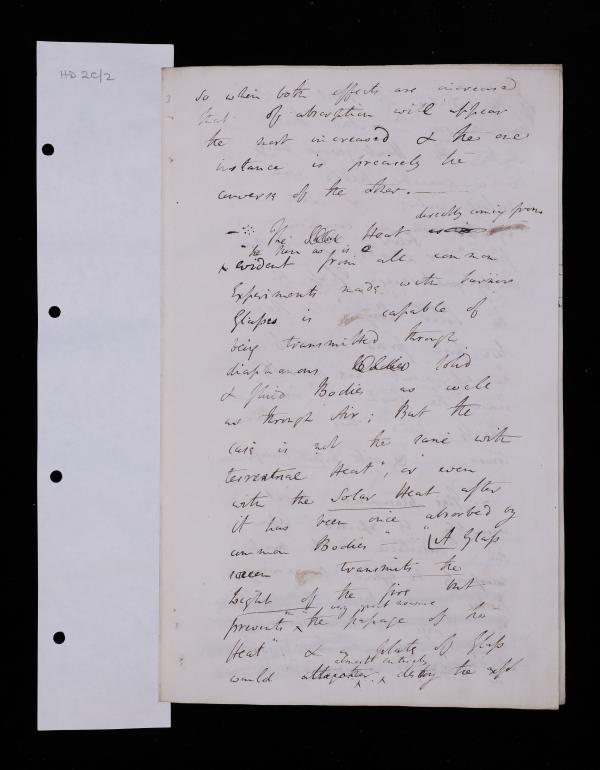 HD 2C/2
so when both effects are increased
that of absorption will appear
the most increased & the one
instance is precisely the
converse of the other. ——
directly coming from
The Heat
the Sun as is
evident from all common
Experiments made with burning
Glasses is capable of
being transmitted through
diaphanous solid
& fluid Bodies as well
as through Air; But the
case is not the same with
terrestrial Heat", or even
with the Solar Heat after
it has been once absorbed by
common Bodies — "A Glass
screen transmits the
Light of the fire but
in very great measure
prevents the passage of the
Heat". & a plate of Glass
almost entirely
would altogether destroy the